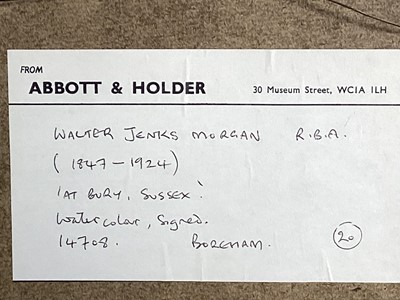 FROM
ABBOTT & HOLDER 30 Museum Street, WC1A 1LH
WALTER JENKS MORGAN R.B.A.
(1847-1924)
'AT BURY, SUSSEX'
Watercolour, Signed.
14708. BOREHAM. 20